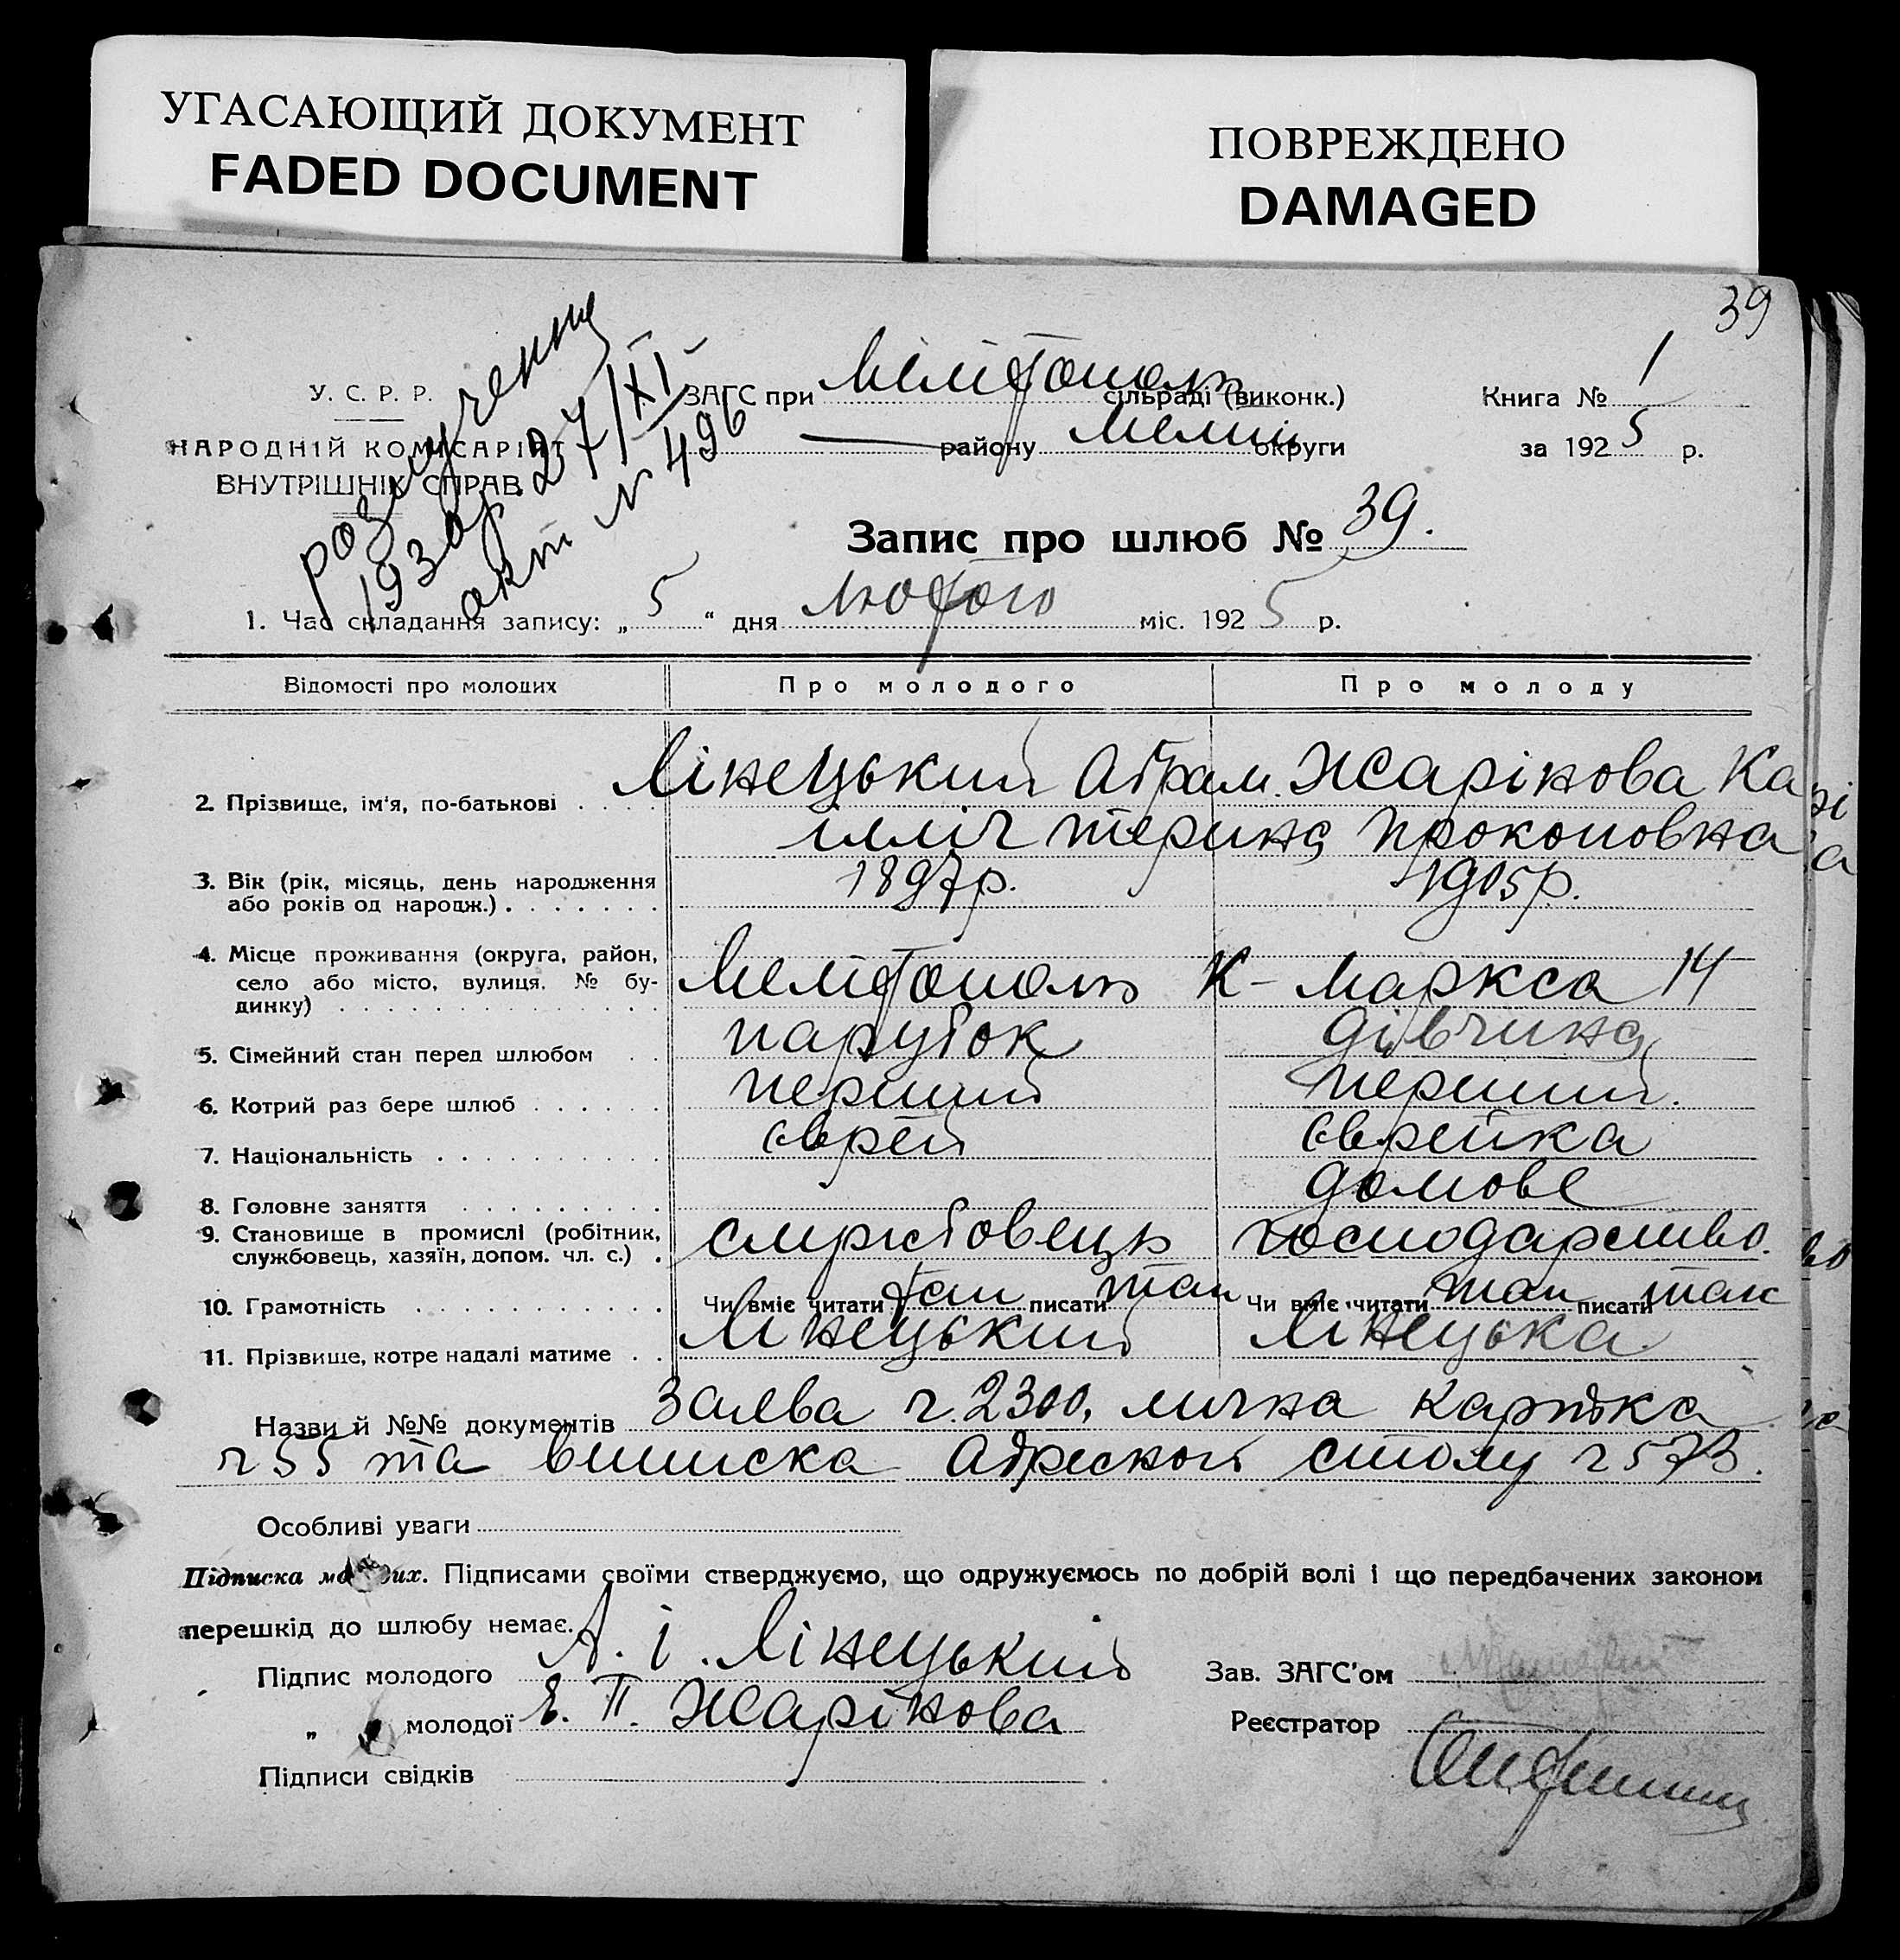 УГАСАЮЩИЙ ДОКУМЕНТ
FADED DOCUMENT
ПОВРЕЖДЕНО
DAMAGED
39
розлученнє
193 р. 27/XI
акт № 496
У. С. Р. Р.
НАРОДНІЙ КОМІСАРІЯТ
ВНУТРІШНІХ СПРАВ
ЗАГС при Мелітополь сільраді (виконк.)
— району Меліт округи
Книга № 1
за 1925 р.
Запис про шлюб № 39.
1. Час складання запису: „ 5 “ дня лютого міс. 1925 р.
Відомості про молодих Про молодого Про молоду
2. Прізвище, ім'я, по-батькові . . . . Лінецький Абрам. Жарінова Ка
ілліч терина Прокоповна
3. Вік (рік, місяць, день народження 1897р. 1905р.
або років од народж.) . . . . . . .
4. Місце проживання (округа, район,
село або місто, вулиця, № бу- Мелітополь К- Маркса 14
динку) . . . . . . . . . . . . . .
5. Сімейний стан перед шлюбом . . парубок дівчина
6. Котрий раз бере шлюб . . . . . . перший перший.
7. Національність . . . . . . . . . . єврей єврейка
8. Головне заняття . . . . . . . . . домове
9. Становище в промислі (робітник, службовець господарство.
службовець, хазяїн, допом. чл. с.) .
10. Грамотність . . . . . . . . . . . Чи вміє читати так писати так Чи вміє читати так писати так
11. Прізвище, котре надалі матиме . . Лінецький Лінецька
Назви й №№ документів Заява ч. 2300, лична картка
ч 55 та виписка Адресной столу ч 573.
Особливі уваги
Підписка молодих. Підписами своїми стверджуємо, що одружуємось по добрій волі і що передбачених законом
перешкід до шлюбу немає.
Підпис молодого А. І. Лінецький
Зав. ЗАГС'ом
„ молодої Е. П. Жарінова
Реєстратор
Підписи свідків